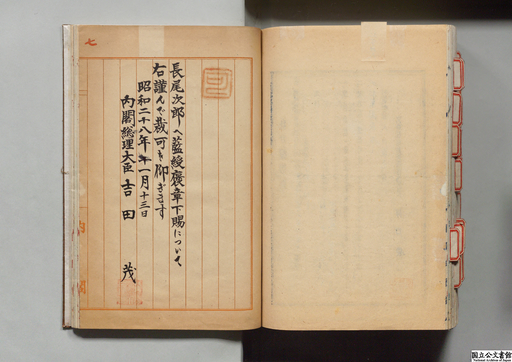 七
可
長尾次郎へ藍綬褒章下賜について
右謹んで裁可を仰ぎます
昭和二十八年一月十三日
内閣総理大臣 吉田 茂
内閣
国立公文書館
National Archives of Japan